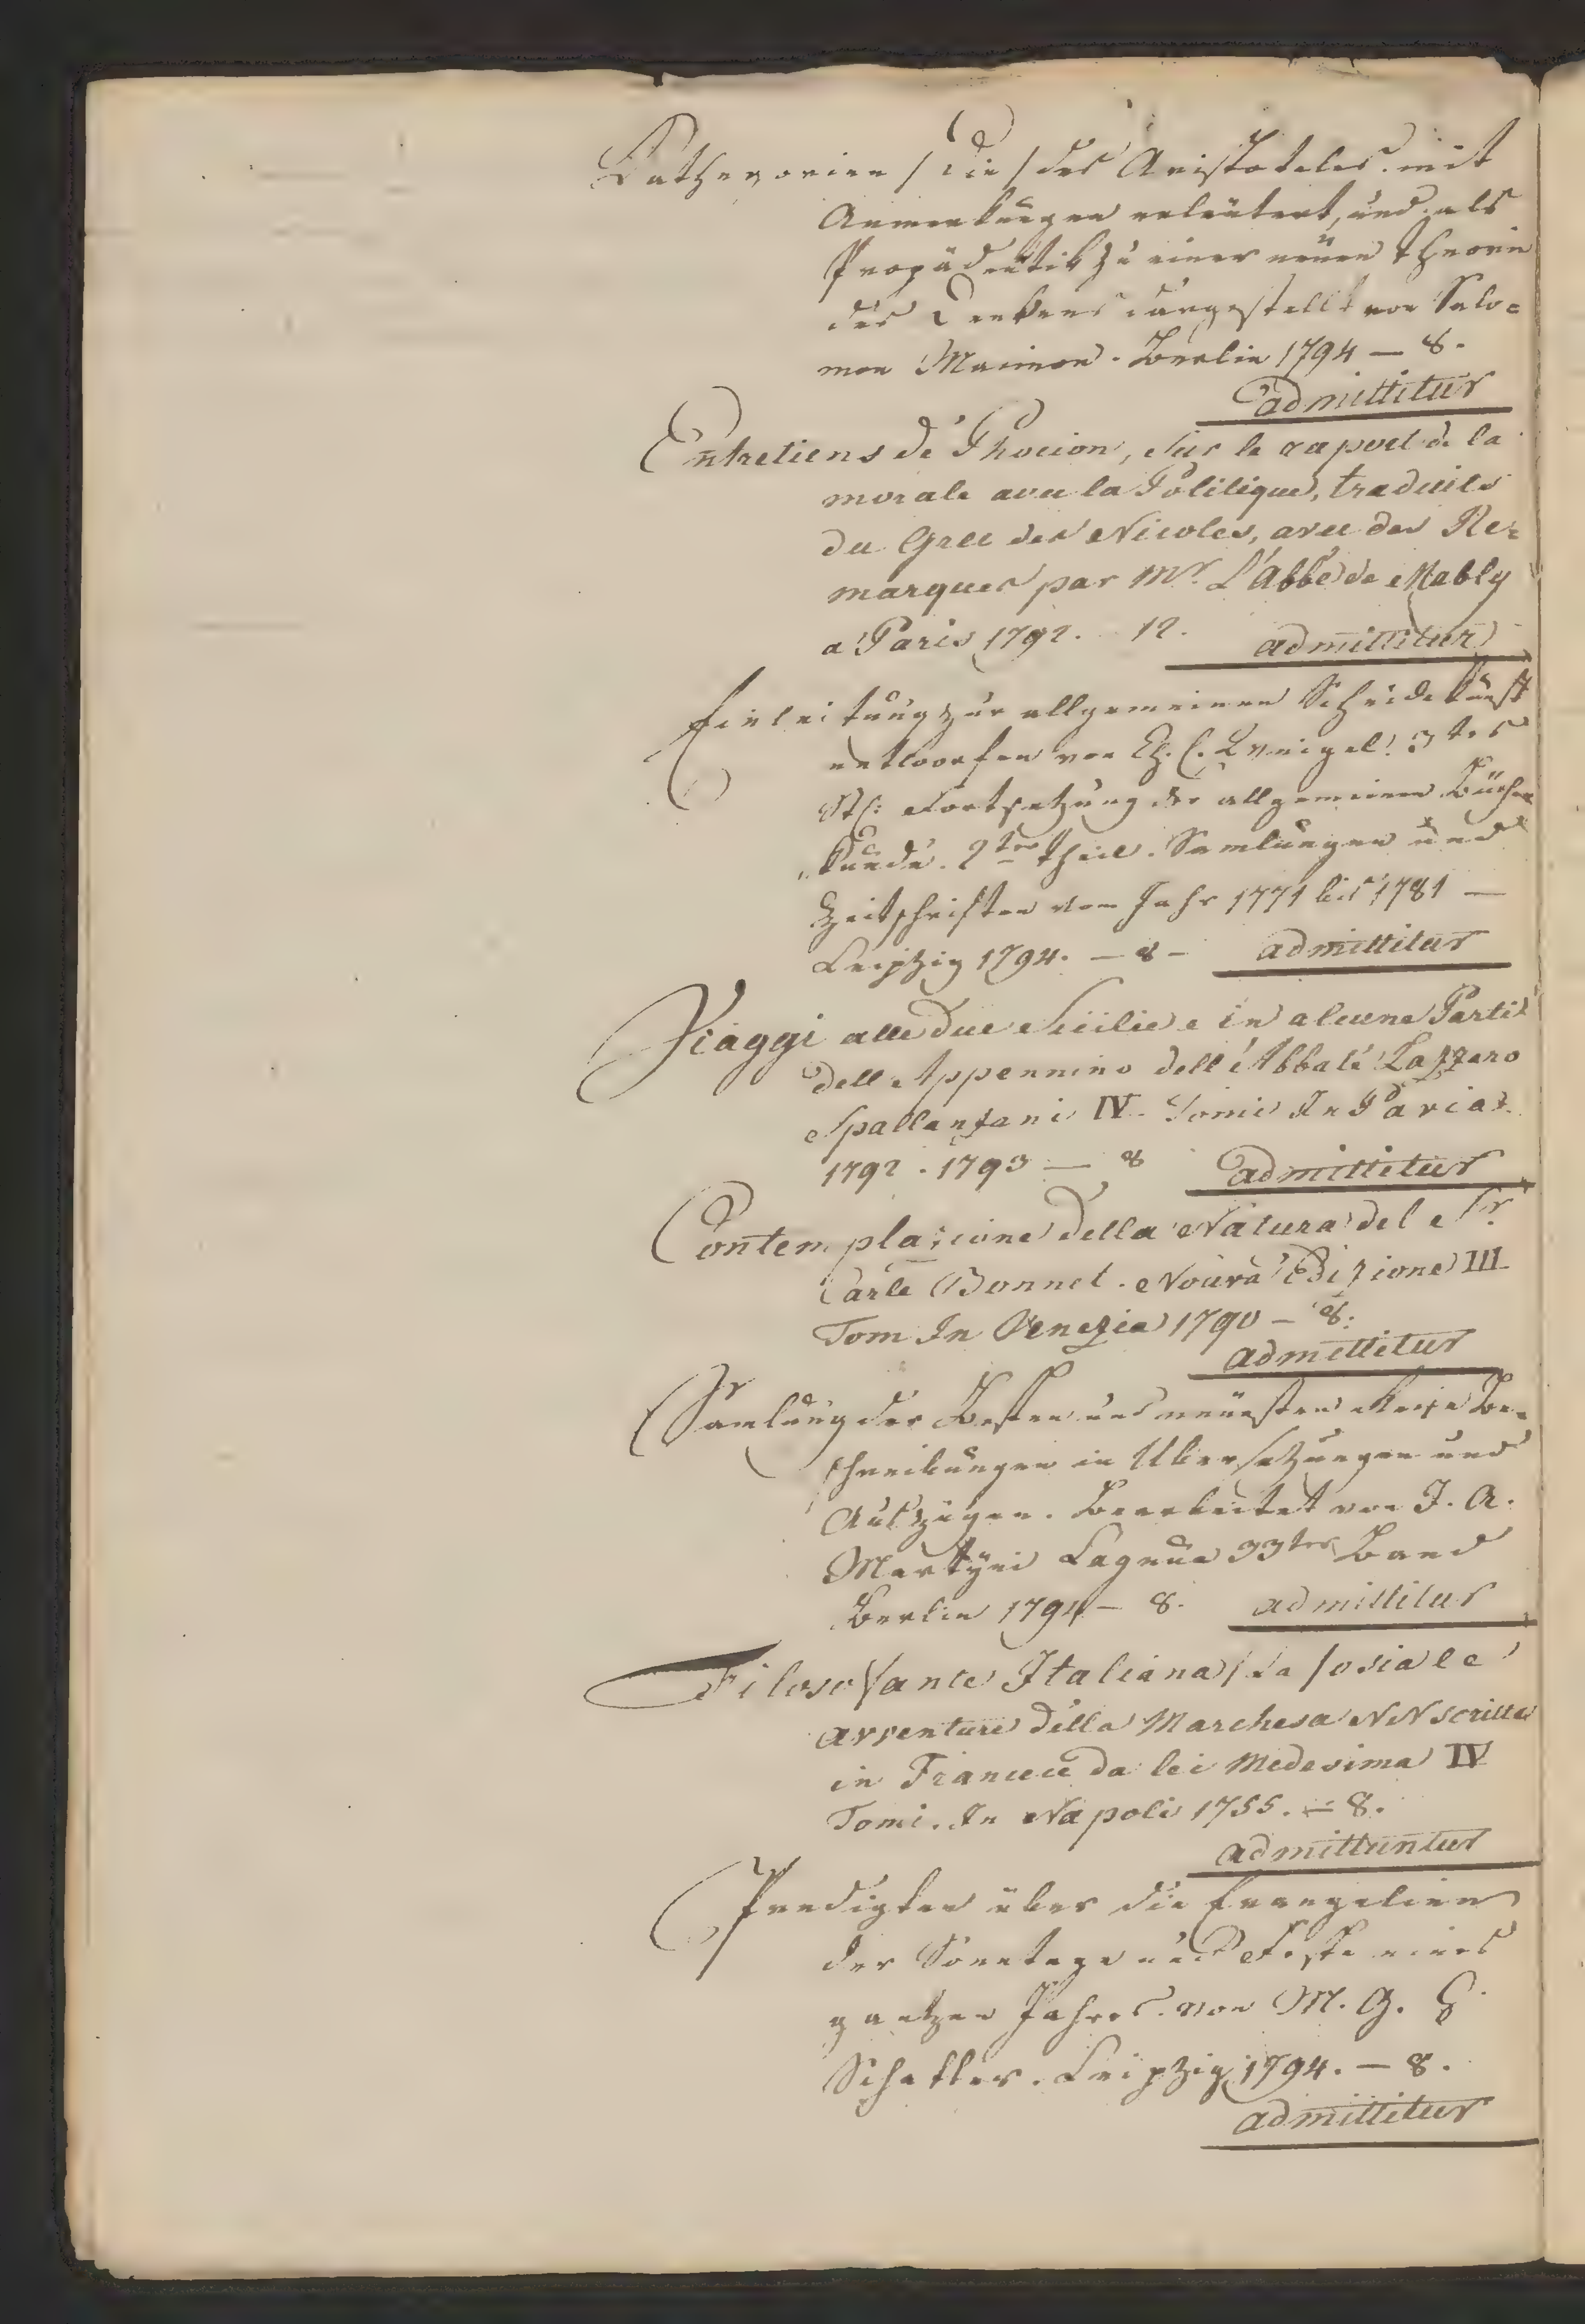 Cathegorien / die / des Aristoteles. mit
Anmerkungen erläutert, und als
Propädeutik zu einer neuen Theorie
des Denkens dargestellt von Salo=
mon Maimon. Berlin 1794 — 8.
admittitur
Entretiens de Phocion, sur le raport de la
morale avec la Politique, traduits
du Grec des Nicoles, avec des Re=
marques par Mr. L'Abbé de Mably
a Paris 1792. 12. admittitur
Einleitung zur allgemeinen Scheidekunst
entworfen von Ch. E. Weigel. 3tes
St: Fortsetzung der allgemeinen Bücher
kunde. 2ter Theil. Samlungen und
Zeitschriften vom Jahr 1771 bis 1781 —
Leipzig 1794. — 8 — admittitur
Viaggi alle due Sicilie e in alcune Parti
dell Appennino dell Abbate Lazzaro
Spallanzani IV. Tomi In Pavia.
1792. 1793 — 8 admittitur
Contemplazione della Natura del Sr.
Carlo Bonnet. Nouva Edizione III
Tom In Venezia 1790 — 8.
admittitur
Samlung der Besten und neuesten Reise Be=
schreibungen in Ubersetzungen und
Auszügen. Bearbeitet von J. A.
Martyni Laguna 33ter Band
Berlin 1794 — 8. admittitur
Filosofante Italiana / La / osia le
avventure della Marchesa NN scritte
in Francece da lei Medesima IV
Tomi. In Napoli 1755. — 8.
admittuntur
Predigten über die Evangelien
der Sonntage und Feste eines
gantzen Jahres. von M. G. E.
Schatter. Leipzig 1794. — 8.
admittitur